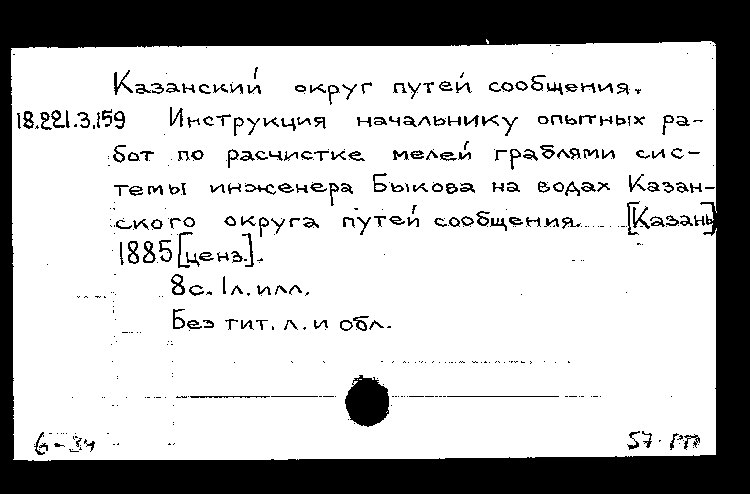 Казанский округ путей сообщения.
18.221.3.159 Инструкция начальнику опытных ра-
бот по расчистке мелей граблями сис-
темы инженера Быкова на водах Казан-
ского округа путей сообщения. [Казань]
1885 [ценз.].
8 с. 1 л. илл.
Без тит. л. и обл.
6-34 57.